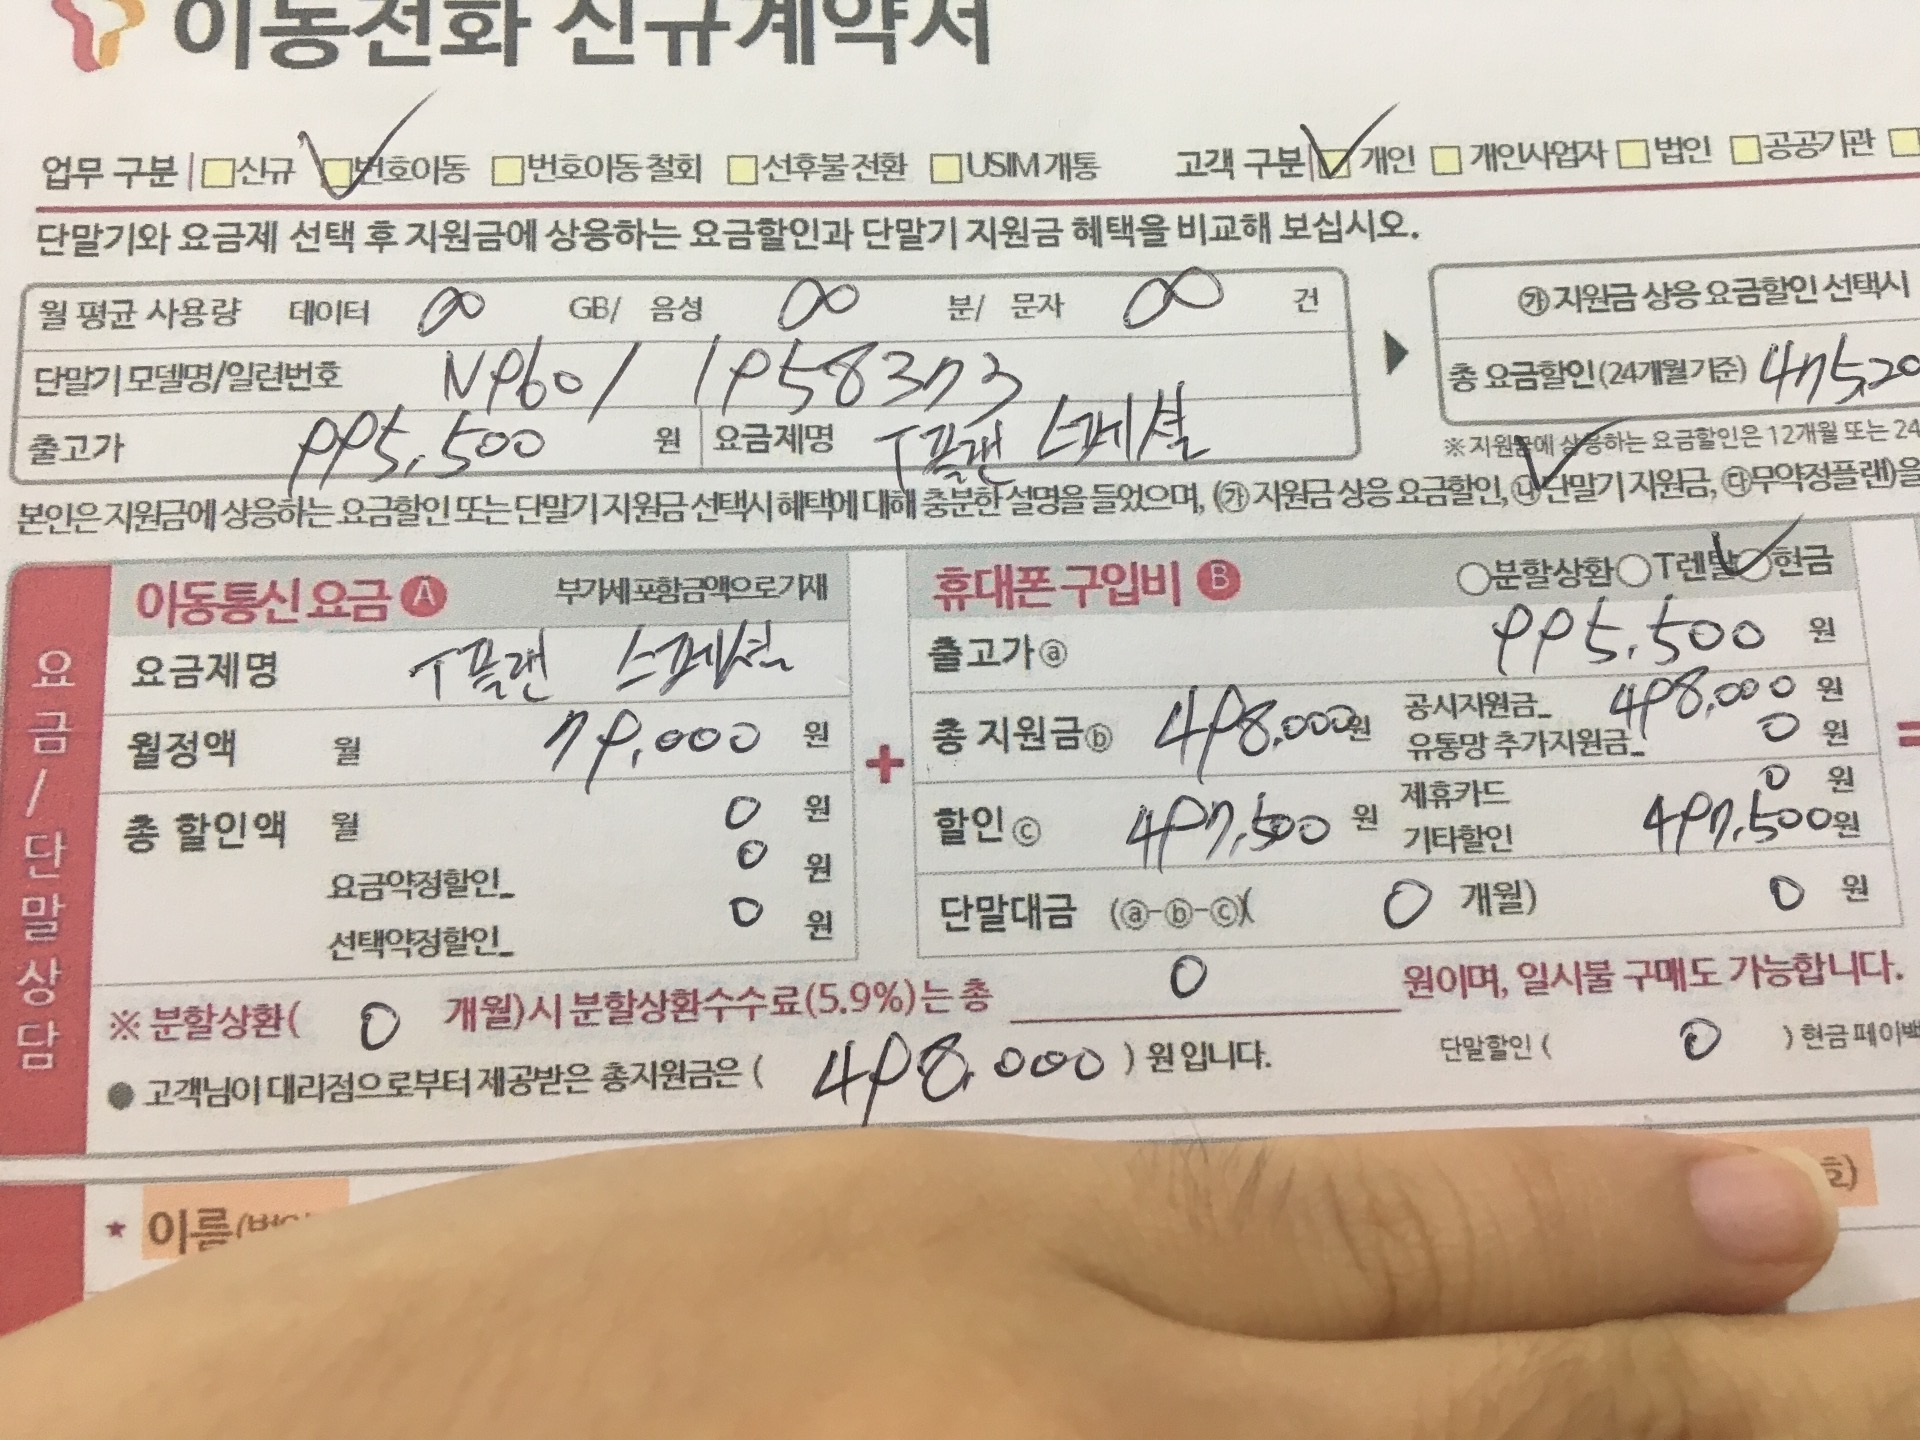 이동전화 신규계약서
업무 구분 신규 번호이동 번호이동 철회 선후불 전환 USIM 개통 고객 구분 개인 개인사업자 법인 공공기관
단말기와 요금제 선택 후 지원금에 상응하는 요금할인과 단말기 지원금 혜택을 비교해 보십시오.
월 평균 사용량 데이터 ∞ GB/ 음성 ∞ 분/ 문자 ∞ 건
㉮ 지원금 상응 요금할인 선택시
단말기 모델명/일련번호 N960 / 1958373
총 요금할인(24개월기준) 475,20
출고가 995,500 원 요금제명 T플랜 스페셜
※ 지원금에 상응하는 요금할인은 12개월 또는 24
본인은 지원금에 상응하는 요금할인 또는 단말기 지원금 선택시 혜택에 대해 충분한 설명을 들었으며, (㉮ 지원금 상응 요금할인, ㉯ 단말기 지원금, ㉰ 무약정플랜)을
요금/단말상담
이동통신 요금 A 부가세 포함 금액으로 기재
요금제명 T플랜 스페셜
월정액 월 79,000 원
총 할인액 월 0 원
요금약정할인_ 0 원
선택약정할인_ 0 원
+
휴대폰 구입비 B 분할상환 T렌탈 현금
출고가 ⓐ 995,500 원
총 지원금 ⓑ 498,000 원 공시지원금_ 498,000 원
유통망 추가지원금_ 0 원
할인 ⓒ 497,500 원 제휴카드 0 원
기타할인 497,500 원
단말대금 (ⓐ-ⓑ-ⓒ)( 0 개월) 0 원
=
※ 분할상환( 0 개월)시 분할상환수수료(5.9%)는 총 0 원이며, 일시불 구매도 가능합니다.
● 고객님이 대리점으로부터 제공받은 총지원금은 ( 498,000 ) 원 입니다. 단말할인 ( 0 ) 현금 페이백
★ 이름(법인
호)